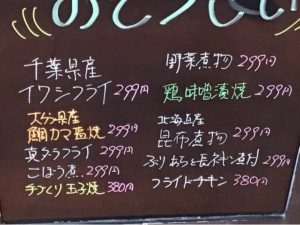 おとうしい
千葉県産
イワシフライ299円
大分県産
鯛カマ塩焼299円
真ダラフライ299円
ごぼう煮.299円
手づくり玉子焼380円
野菜煮物299円
鶏味噌漬焼299円
北海道産
昆布煮物299円
ぶりあらと長ネギ煮付299円
フライドチキン380円